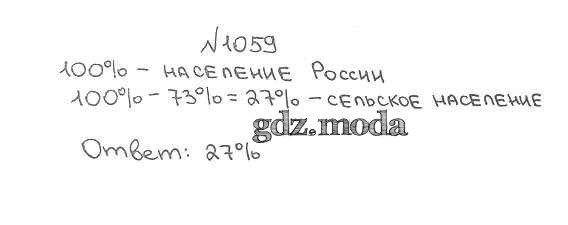 №1059
100% – население России
100% – 73% = 27% – сельское население
gdz.moda
Ответ: 27%